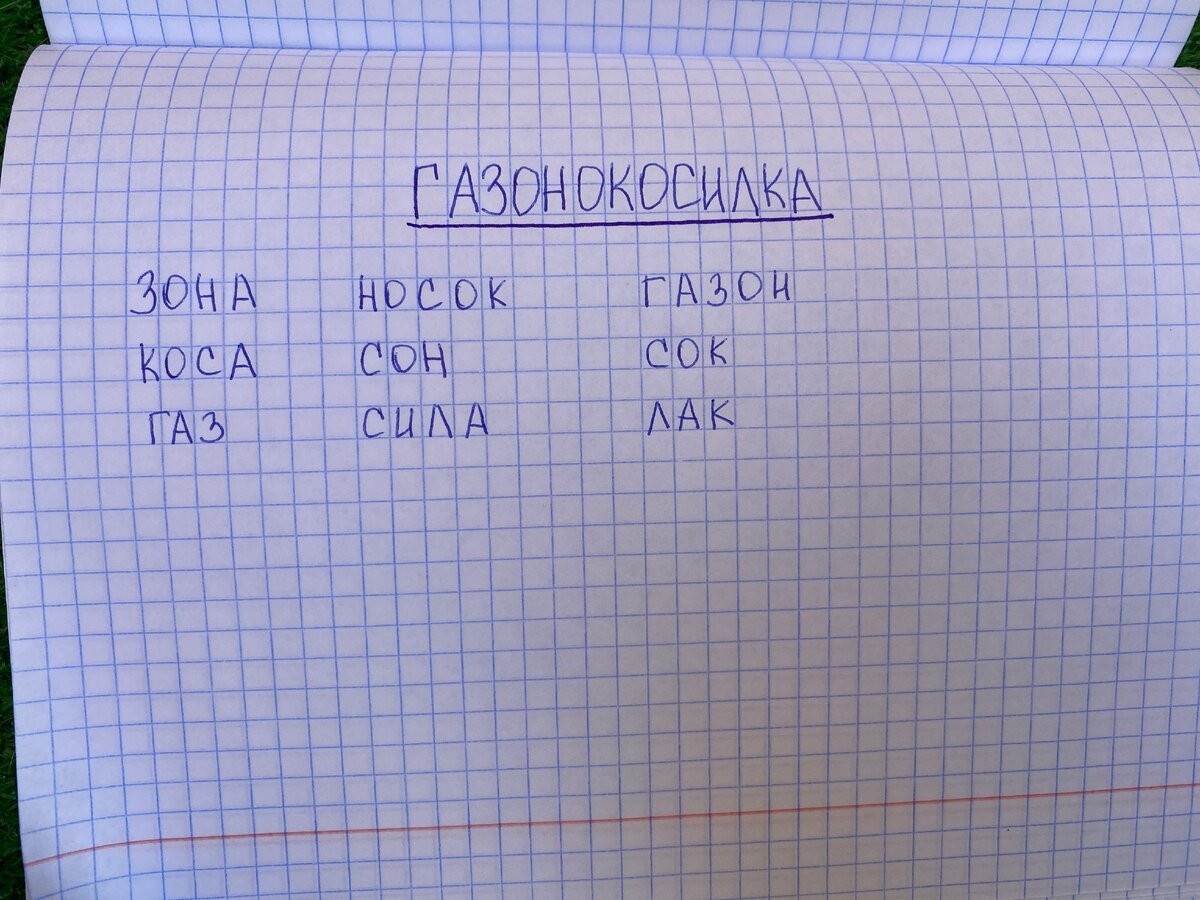 ГАЗОНОКОСИЛКА
ЗОНА НОСОК ГАЗОН
КОСА СОН СОК
ГАЗ СИЛА ЛАК